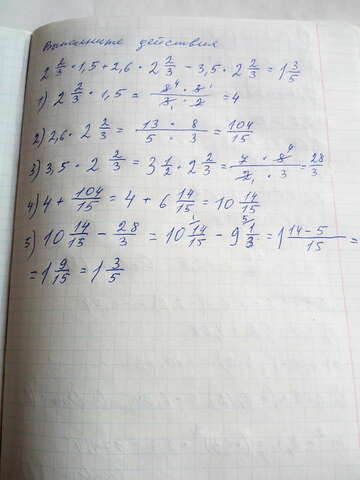 Выполните действия
2 2/3 · 1,5 + 2,6 · 2 2/3 - 3,5 · 2 2/3 = 1 3/5
1) 2 2/3 · 1,5 = 8⁴ · 3¹ / 3₁ · 2 = 4
2) 2,6 · 2 2/3 = 13 · 8 / 5 · 3 = 104/15
3) 3,5 · 2 2/3 = 3 1/2 · 2 2/3 = 7 · 8⁴ / 2₁ · 3 = 28/3
4) 4 + 104/15 = 4 + 6 14/15 = 10 14/15
5) 10 14/15 - 28/3 = 10 14¹/15 - 9 1⁵/3 = 1 14-5/15 =
= 1 9/15 = 1 3/5